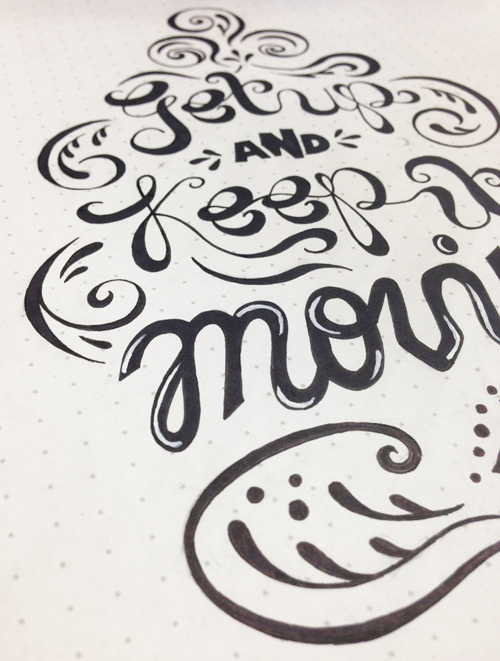 Get up
AND
Keep
movi